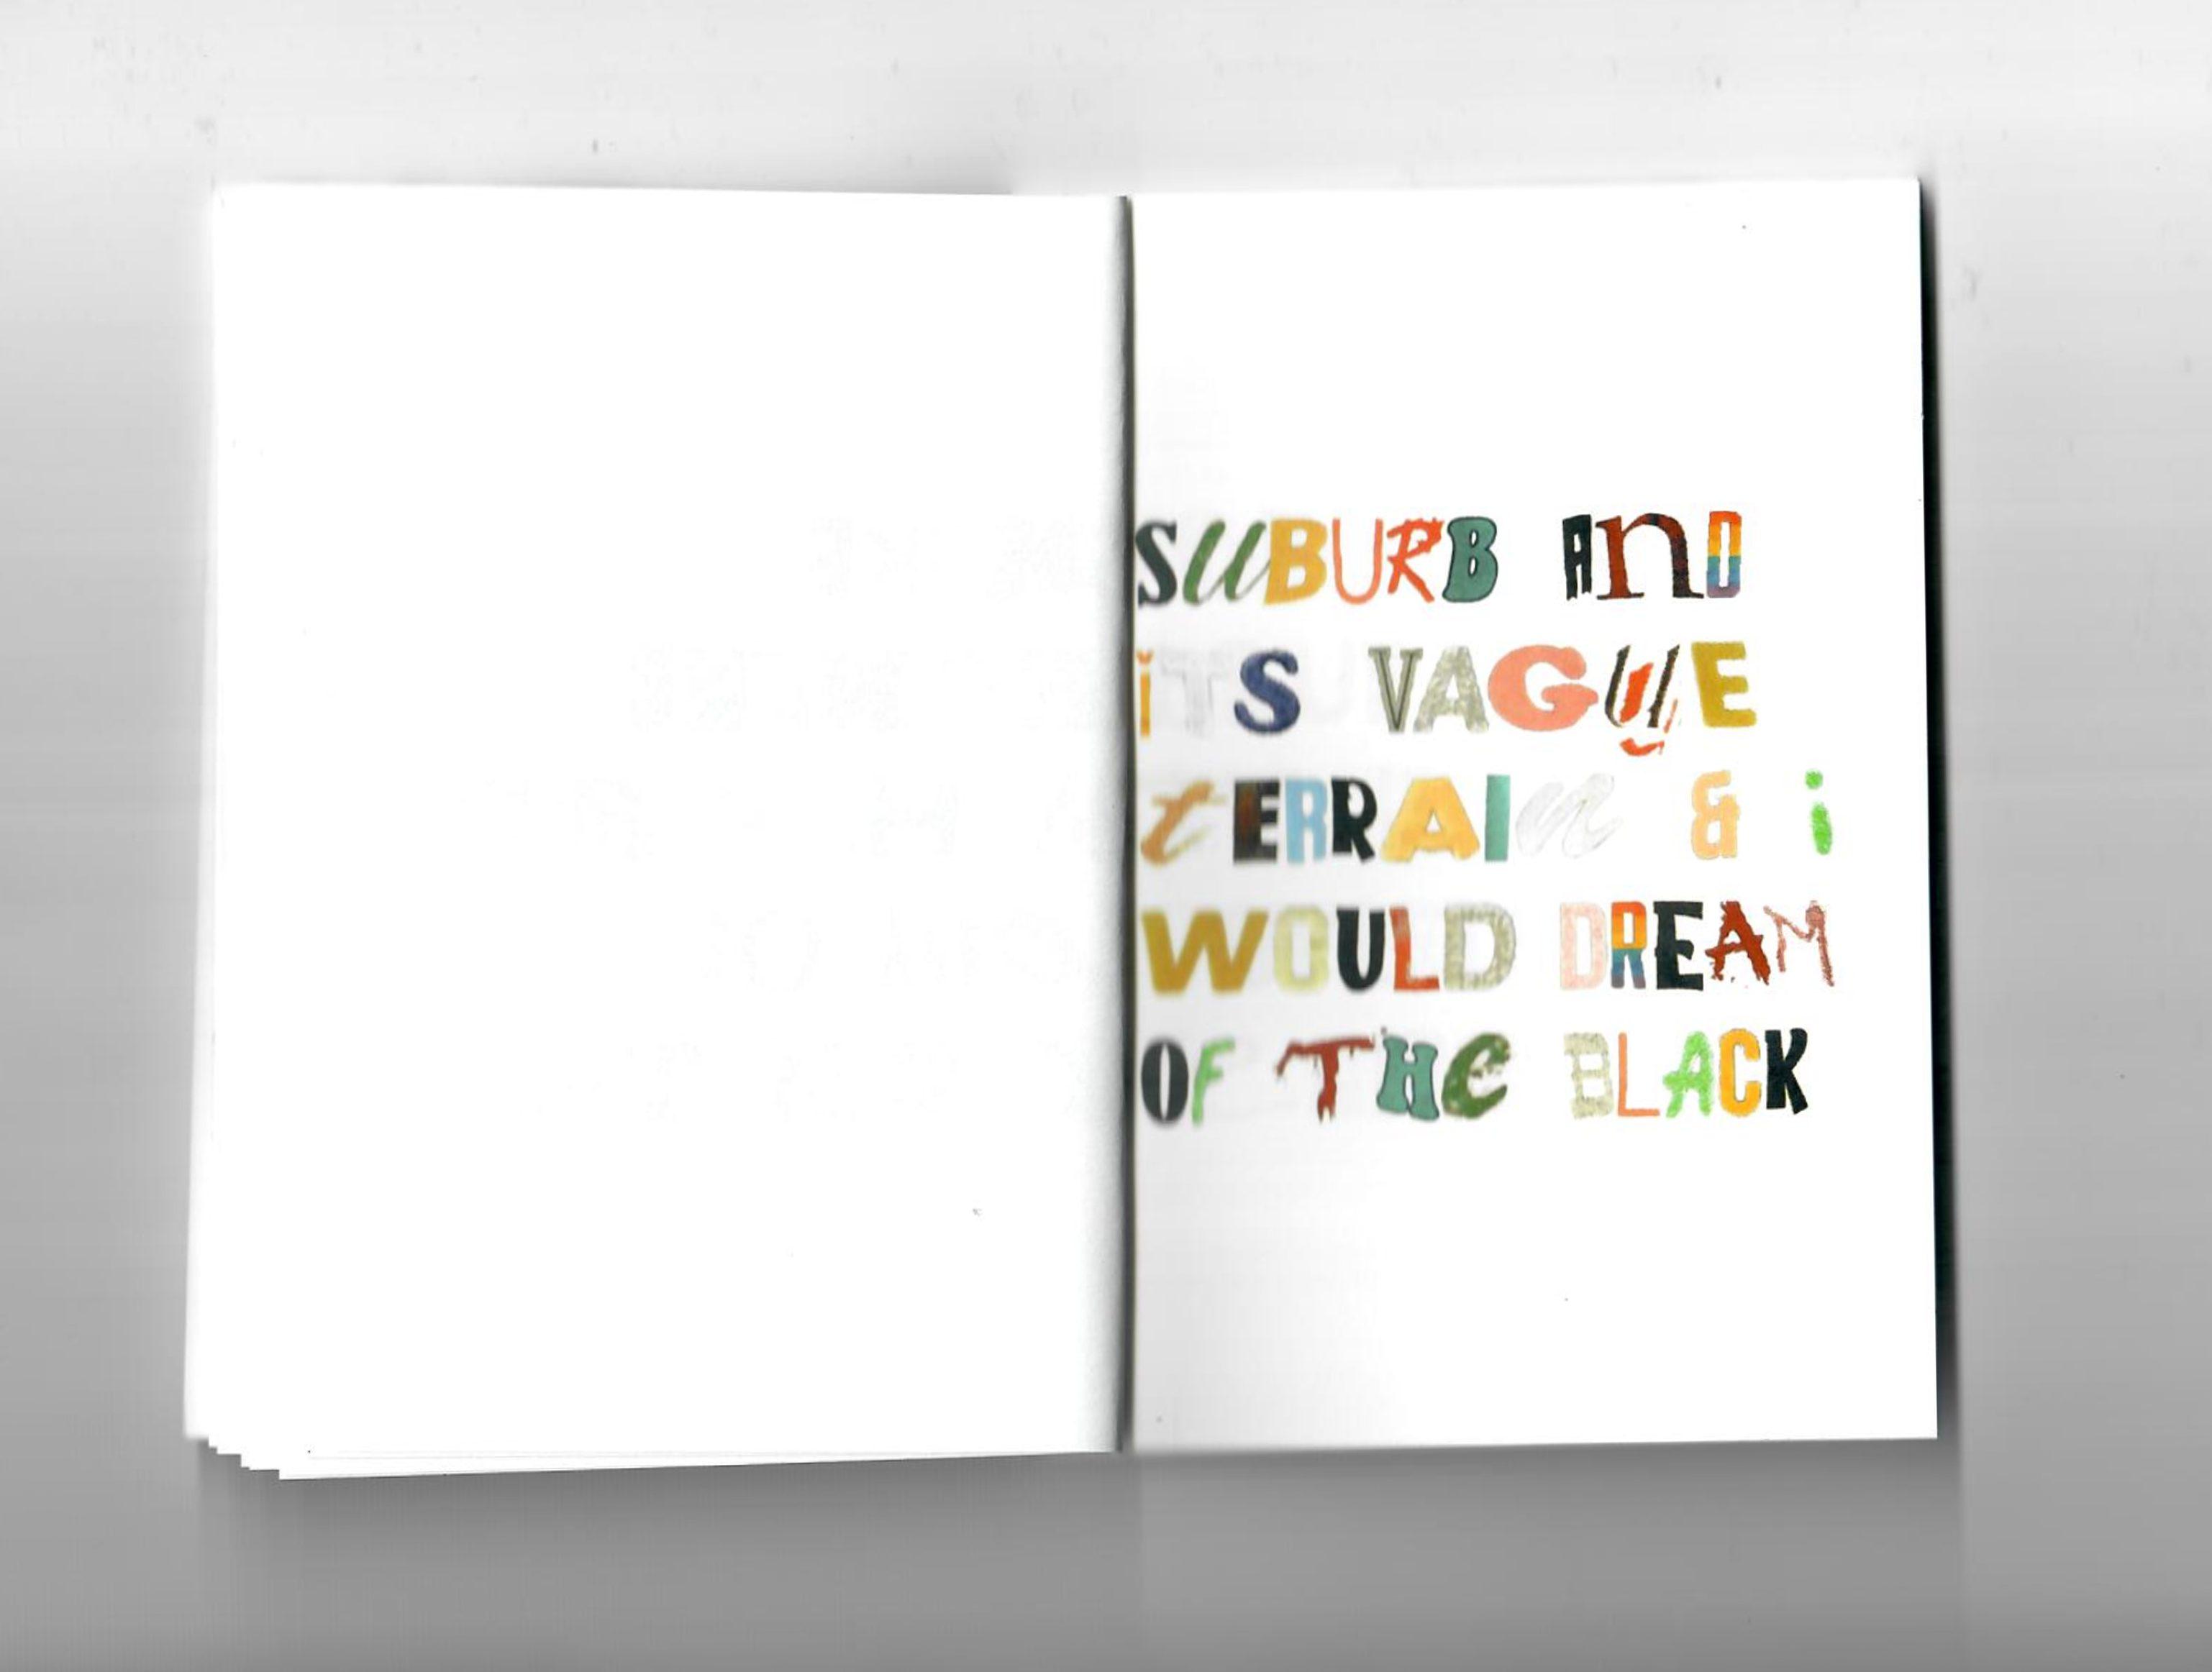 SUBURB AnD
iTS VAGUE
tERRAIn & i
WOULD DREAM
OF THe BLACK